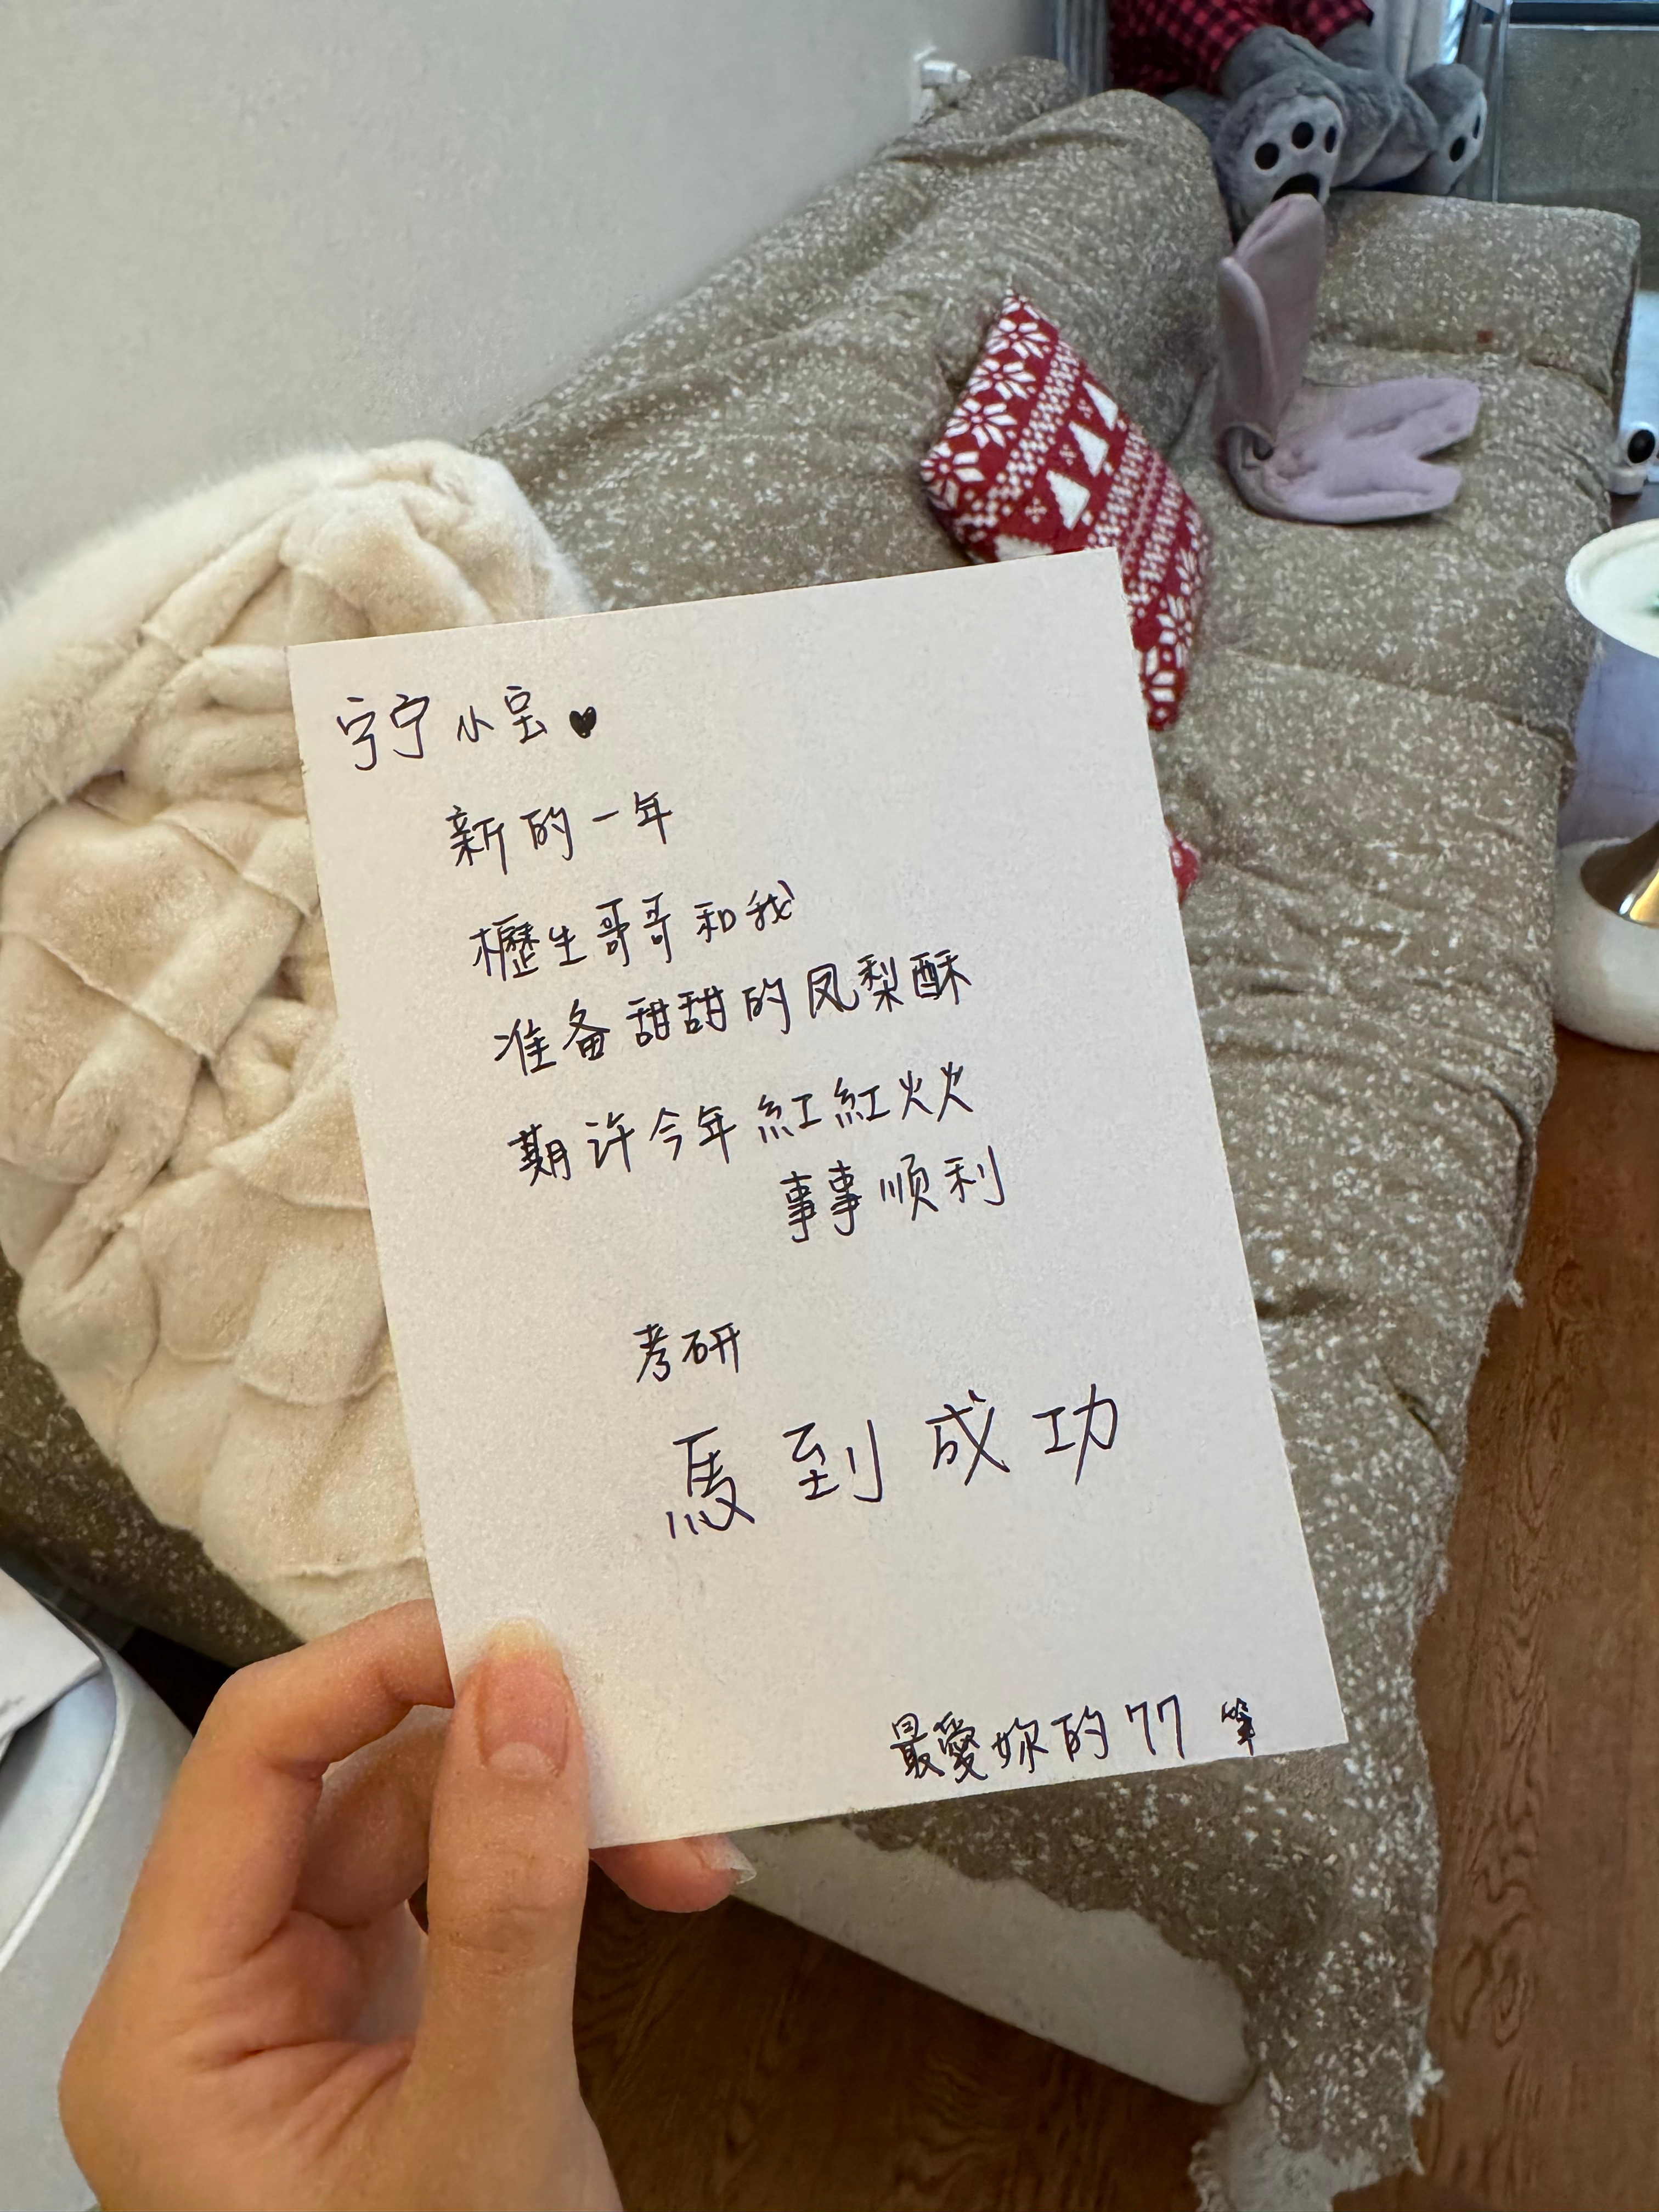 宁宁小宝♥
新的一年
櫪生哥哥和我
准备甜甜的凤梨酥
期许今年紅紅火火
事事顺利
考研
馬到成功
最愛妳的77 筆